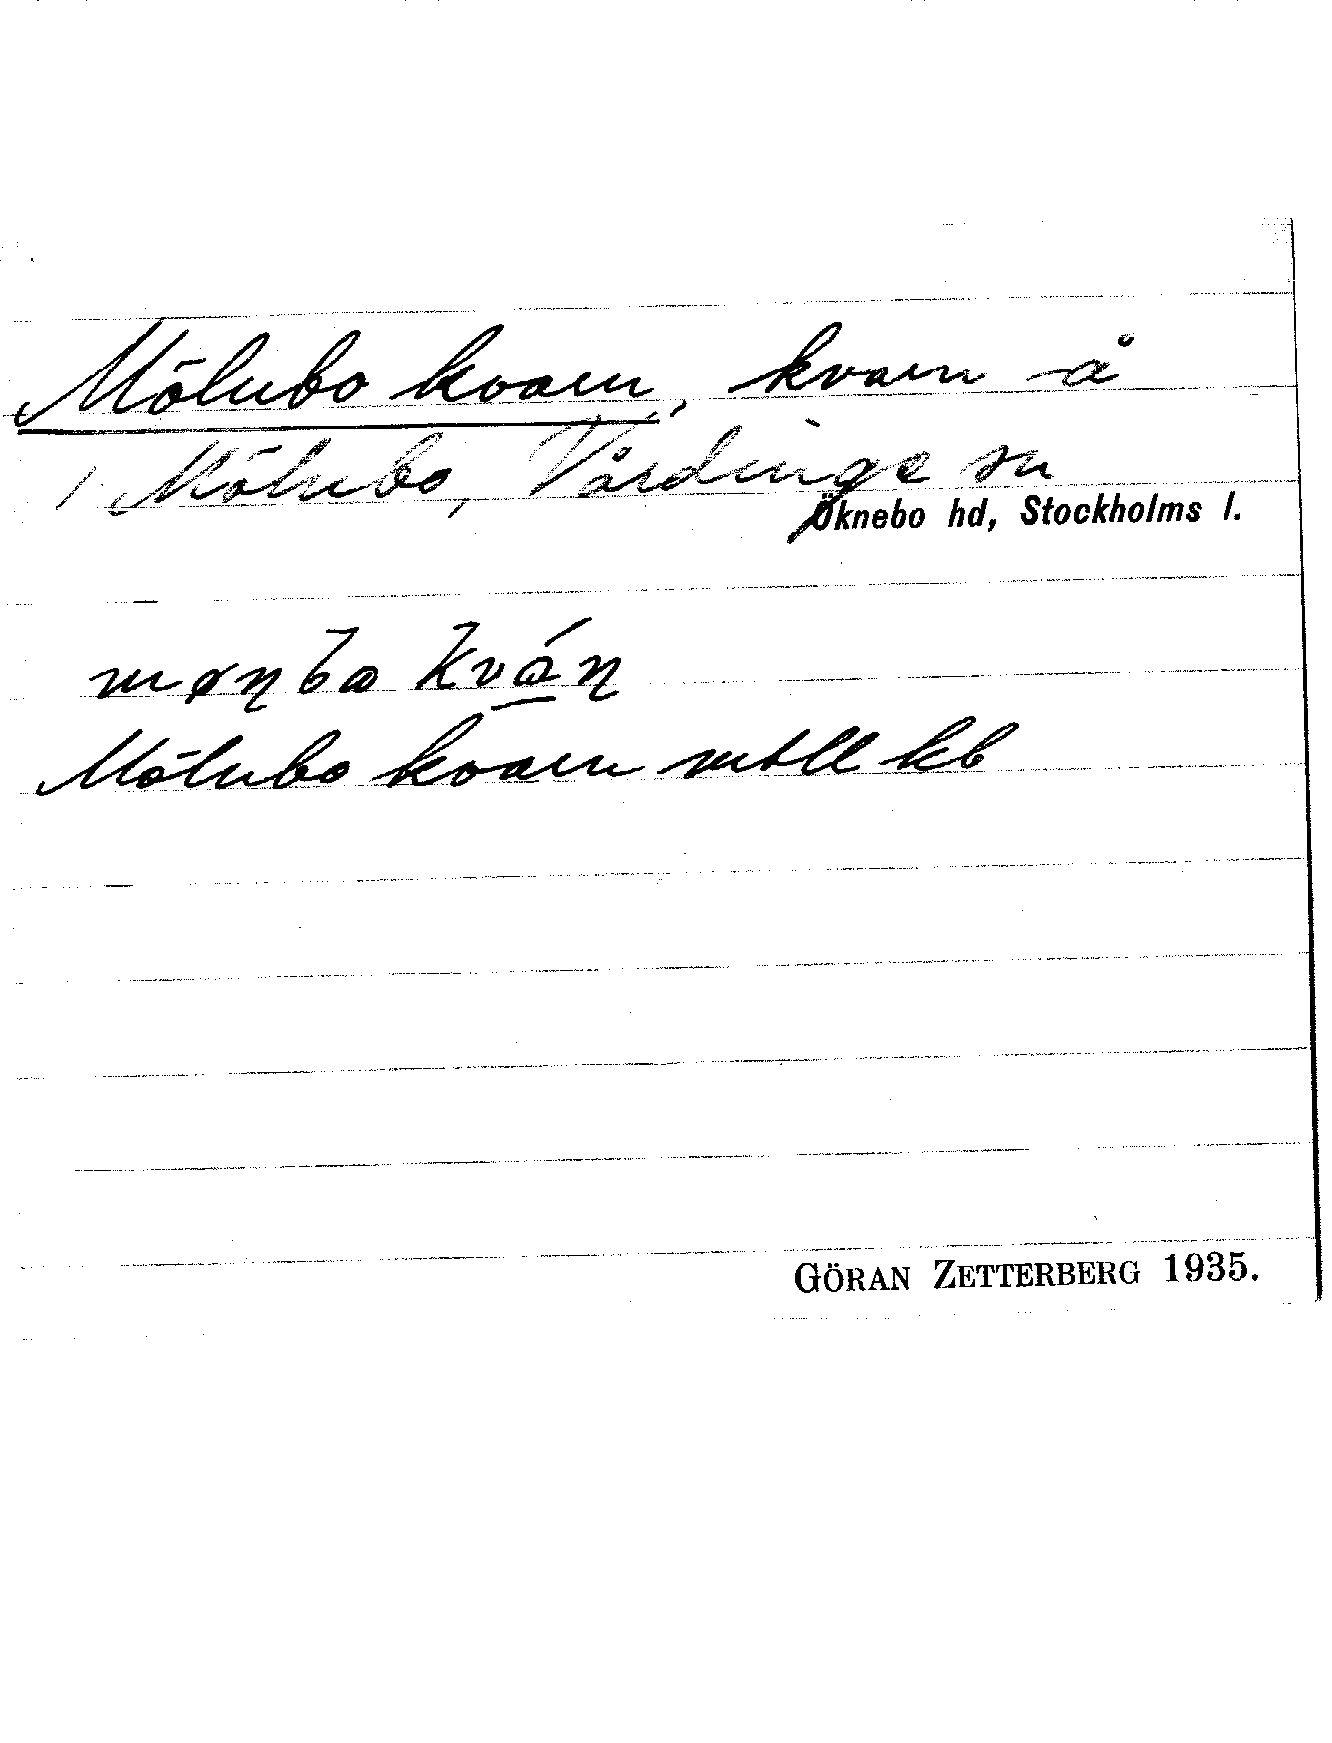 Mölnbo kvarn, kvarn å
/ Mölnbo, Vårdinge sn
Öknebo hd, Stockholms l.
møɳbo kván
Mölnbo kvarn mtll kb
GÖRAN ZETTERBERG 1935.